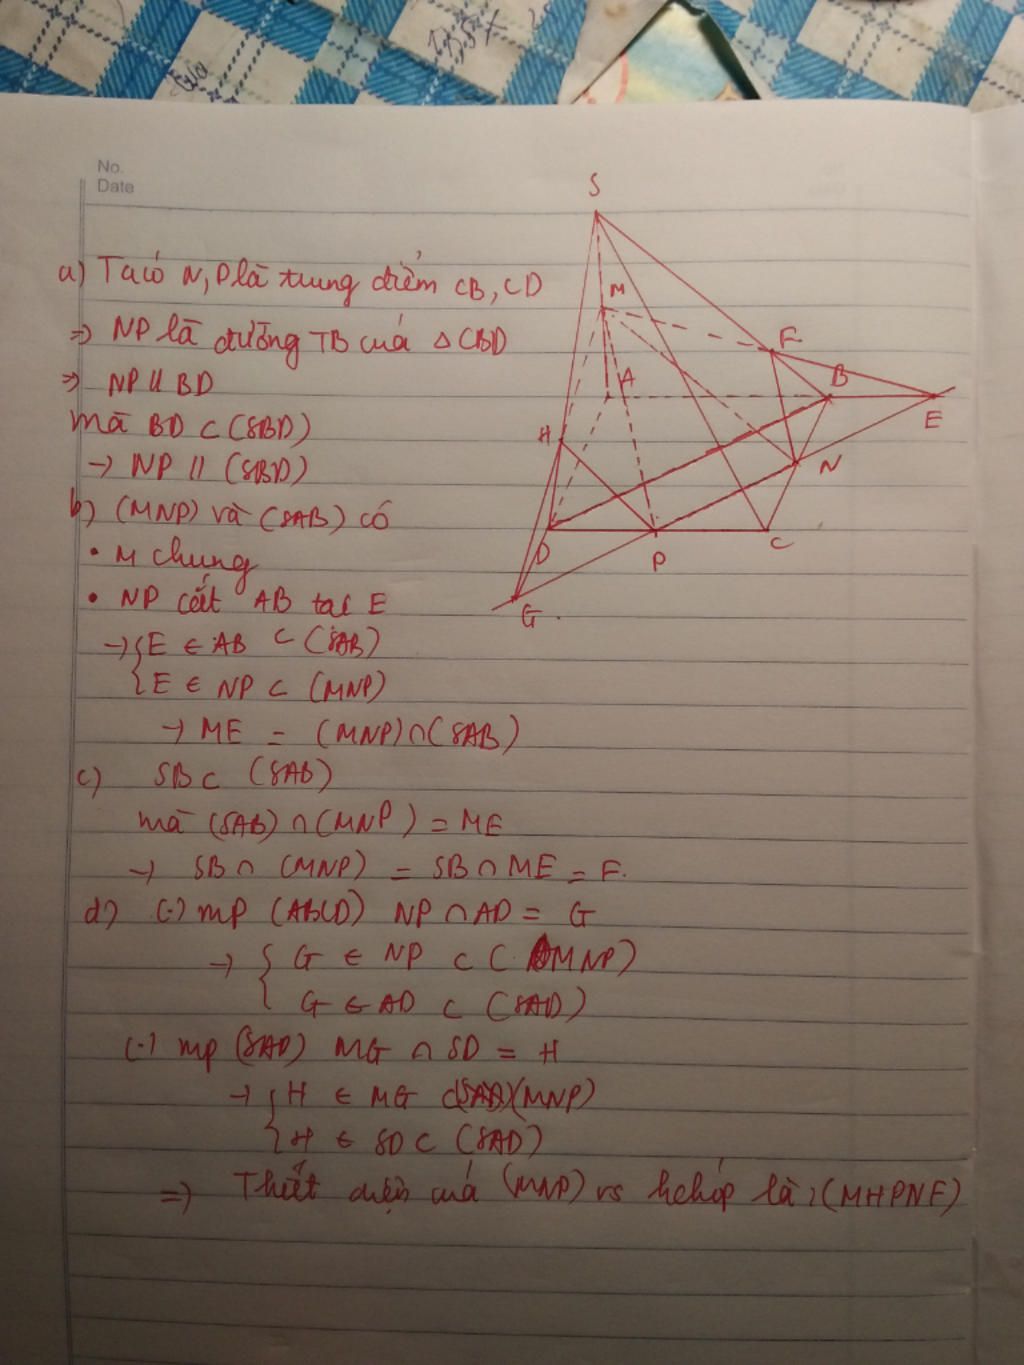 No.
Date
S
M
F
A
B
E
H
N
D
P
C
G
a) Ta có N, P là trung điểm CB, CD
=> NP là đường TB của △CBD
=> NP // BD
mà BD ⊂ (SBD)
→ NP // (SBD)
b) (MNP) và (SAB) có
• M chung
• NP cắt AB tại E
→ { E ∈ AB ⊂ (SAB)
{ E ∈ NP ⊂ (MNP)
→ ME = (MNP) ∩ (SAB)
c) SB ⊂ (SAB)
mà (SAB) ∩ (MNP) = ME
→ SB ∩ (MNP) = SB ∩ ME = F.
d) (·) mp (ABCD) NP ∩ AD = G
→ { G ∈ NP ⊂ (MNP)
{ G ∈ AD ⊂ (SAD)
(·) mp (SAD) MG ∩ SD = H
→ { H ∈ MG ⊂ (MNP)
{ H ∈ SD ⊂ (SAD)
=> Thiết diện của (MNP) vs hchóp là : (MHPNF)